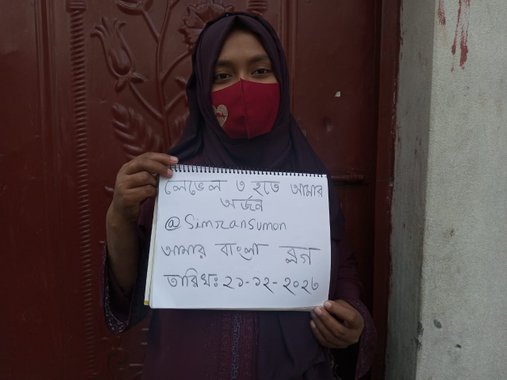 লেভেল ৩ হতে আমার
অর্জন
@simransumon
আমার বাংলা ব্লগ
তারিখঃ ২১-১২-২০২৩